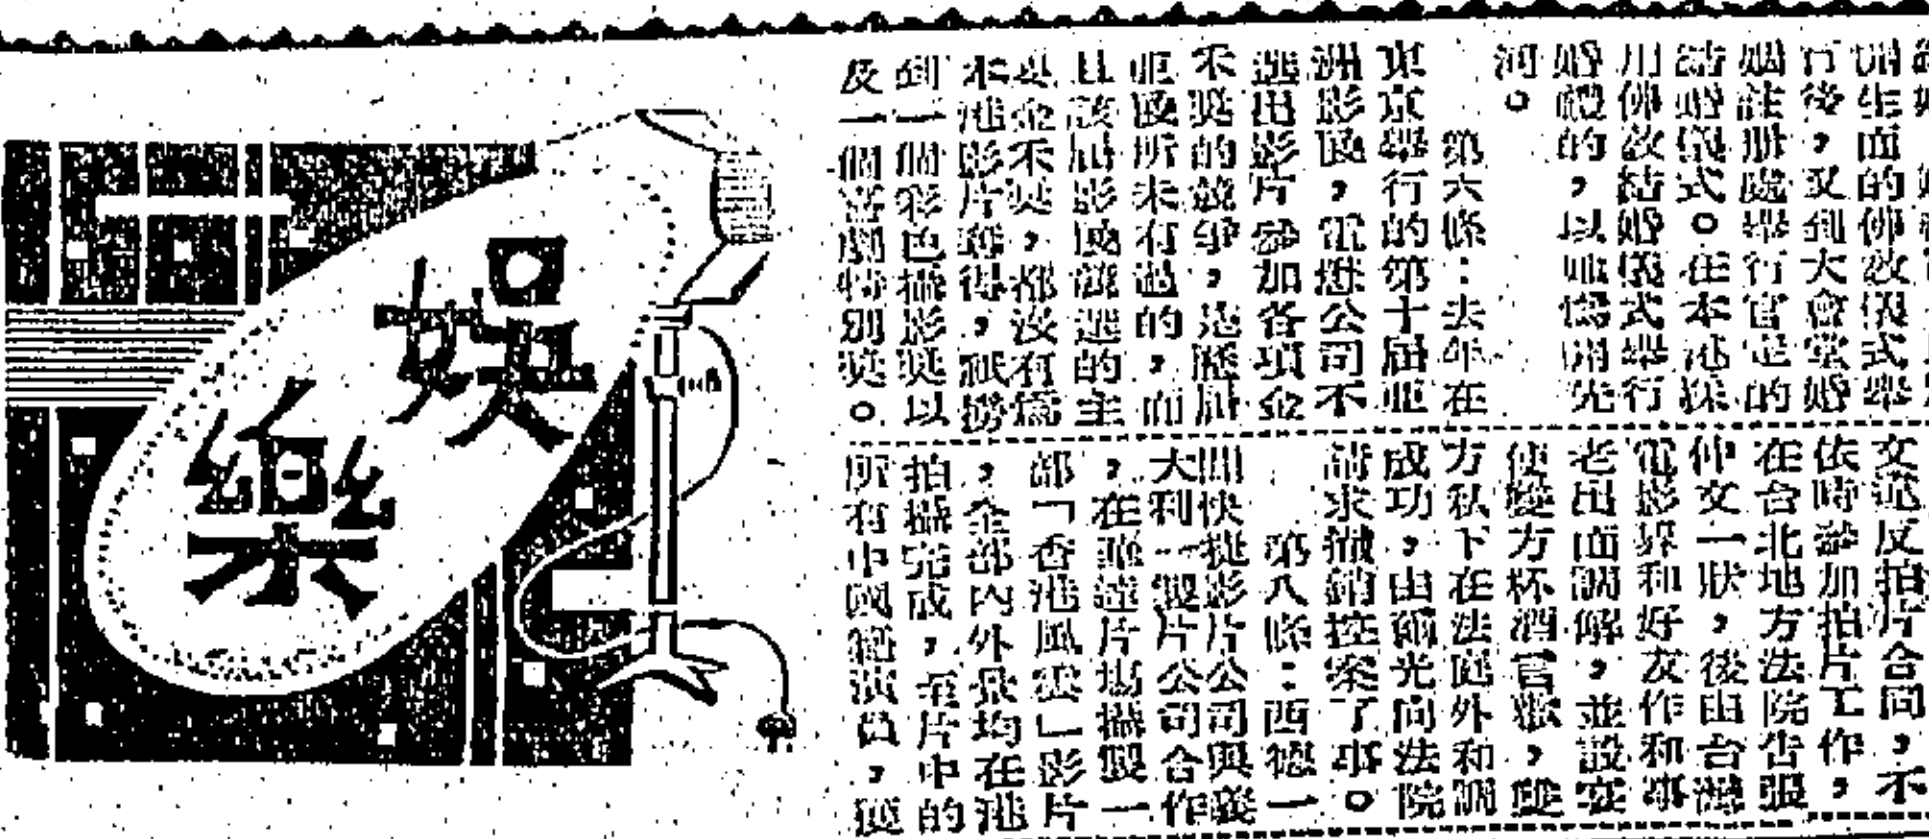 娛樂
開生面的佛教儀式舉
行後，又到大會堂婚
姻註册處舉行官定的
結婚儀式。在本港採
用佛教結婚儀式舉行
婚禮的，以她爲開先
河。
第六條：去年在
東京舉行的第十屆亞
洲影展，電懋公司不
選出影片參加各項金
禾獎的競爭，是歷屆
亞展所未有過的，而
且該屆影展競選的主
要金禾獎，都沒有爲
本港影片奪得，祇撈
到一個彩色攝影獎以
及一個喜劇特別獎。
文違反拍片合同，不
依時參加拍片工作，
在台北地方法院告張
仲文一狀，後由台灣
電影界和好友作和事
老出面調解，並設宴
使雙方杯酒言歡，雙
方私下在法庭外和調
成功，由光向法院
請求撤銷控案了事。
第八條：西德一
間快捷影片公司與義
大利一製片公司合作
，在華達片場攝製一
部「香港風雲」影片
，全部內外景均在港
拍攝完成，至片中的
所有中國籍演員，更